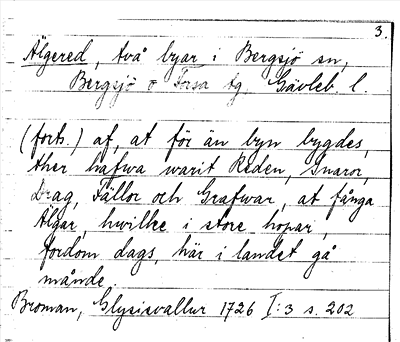 3.
Älgered, två byar i Bergsjö sn,
Bergsjö o Forsa tg. Gävleb. l.
(forts.) af, at för än byn bygdes,
ther hafwa warit Reden, Snaror,
Drag, Fällor och Grafwar, at fånga
Älgar, hwilke i store hopar,
fordom dags, här i landet gå
månde.
Broman, Glysisvallur 1726 I:3 s. 202